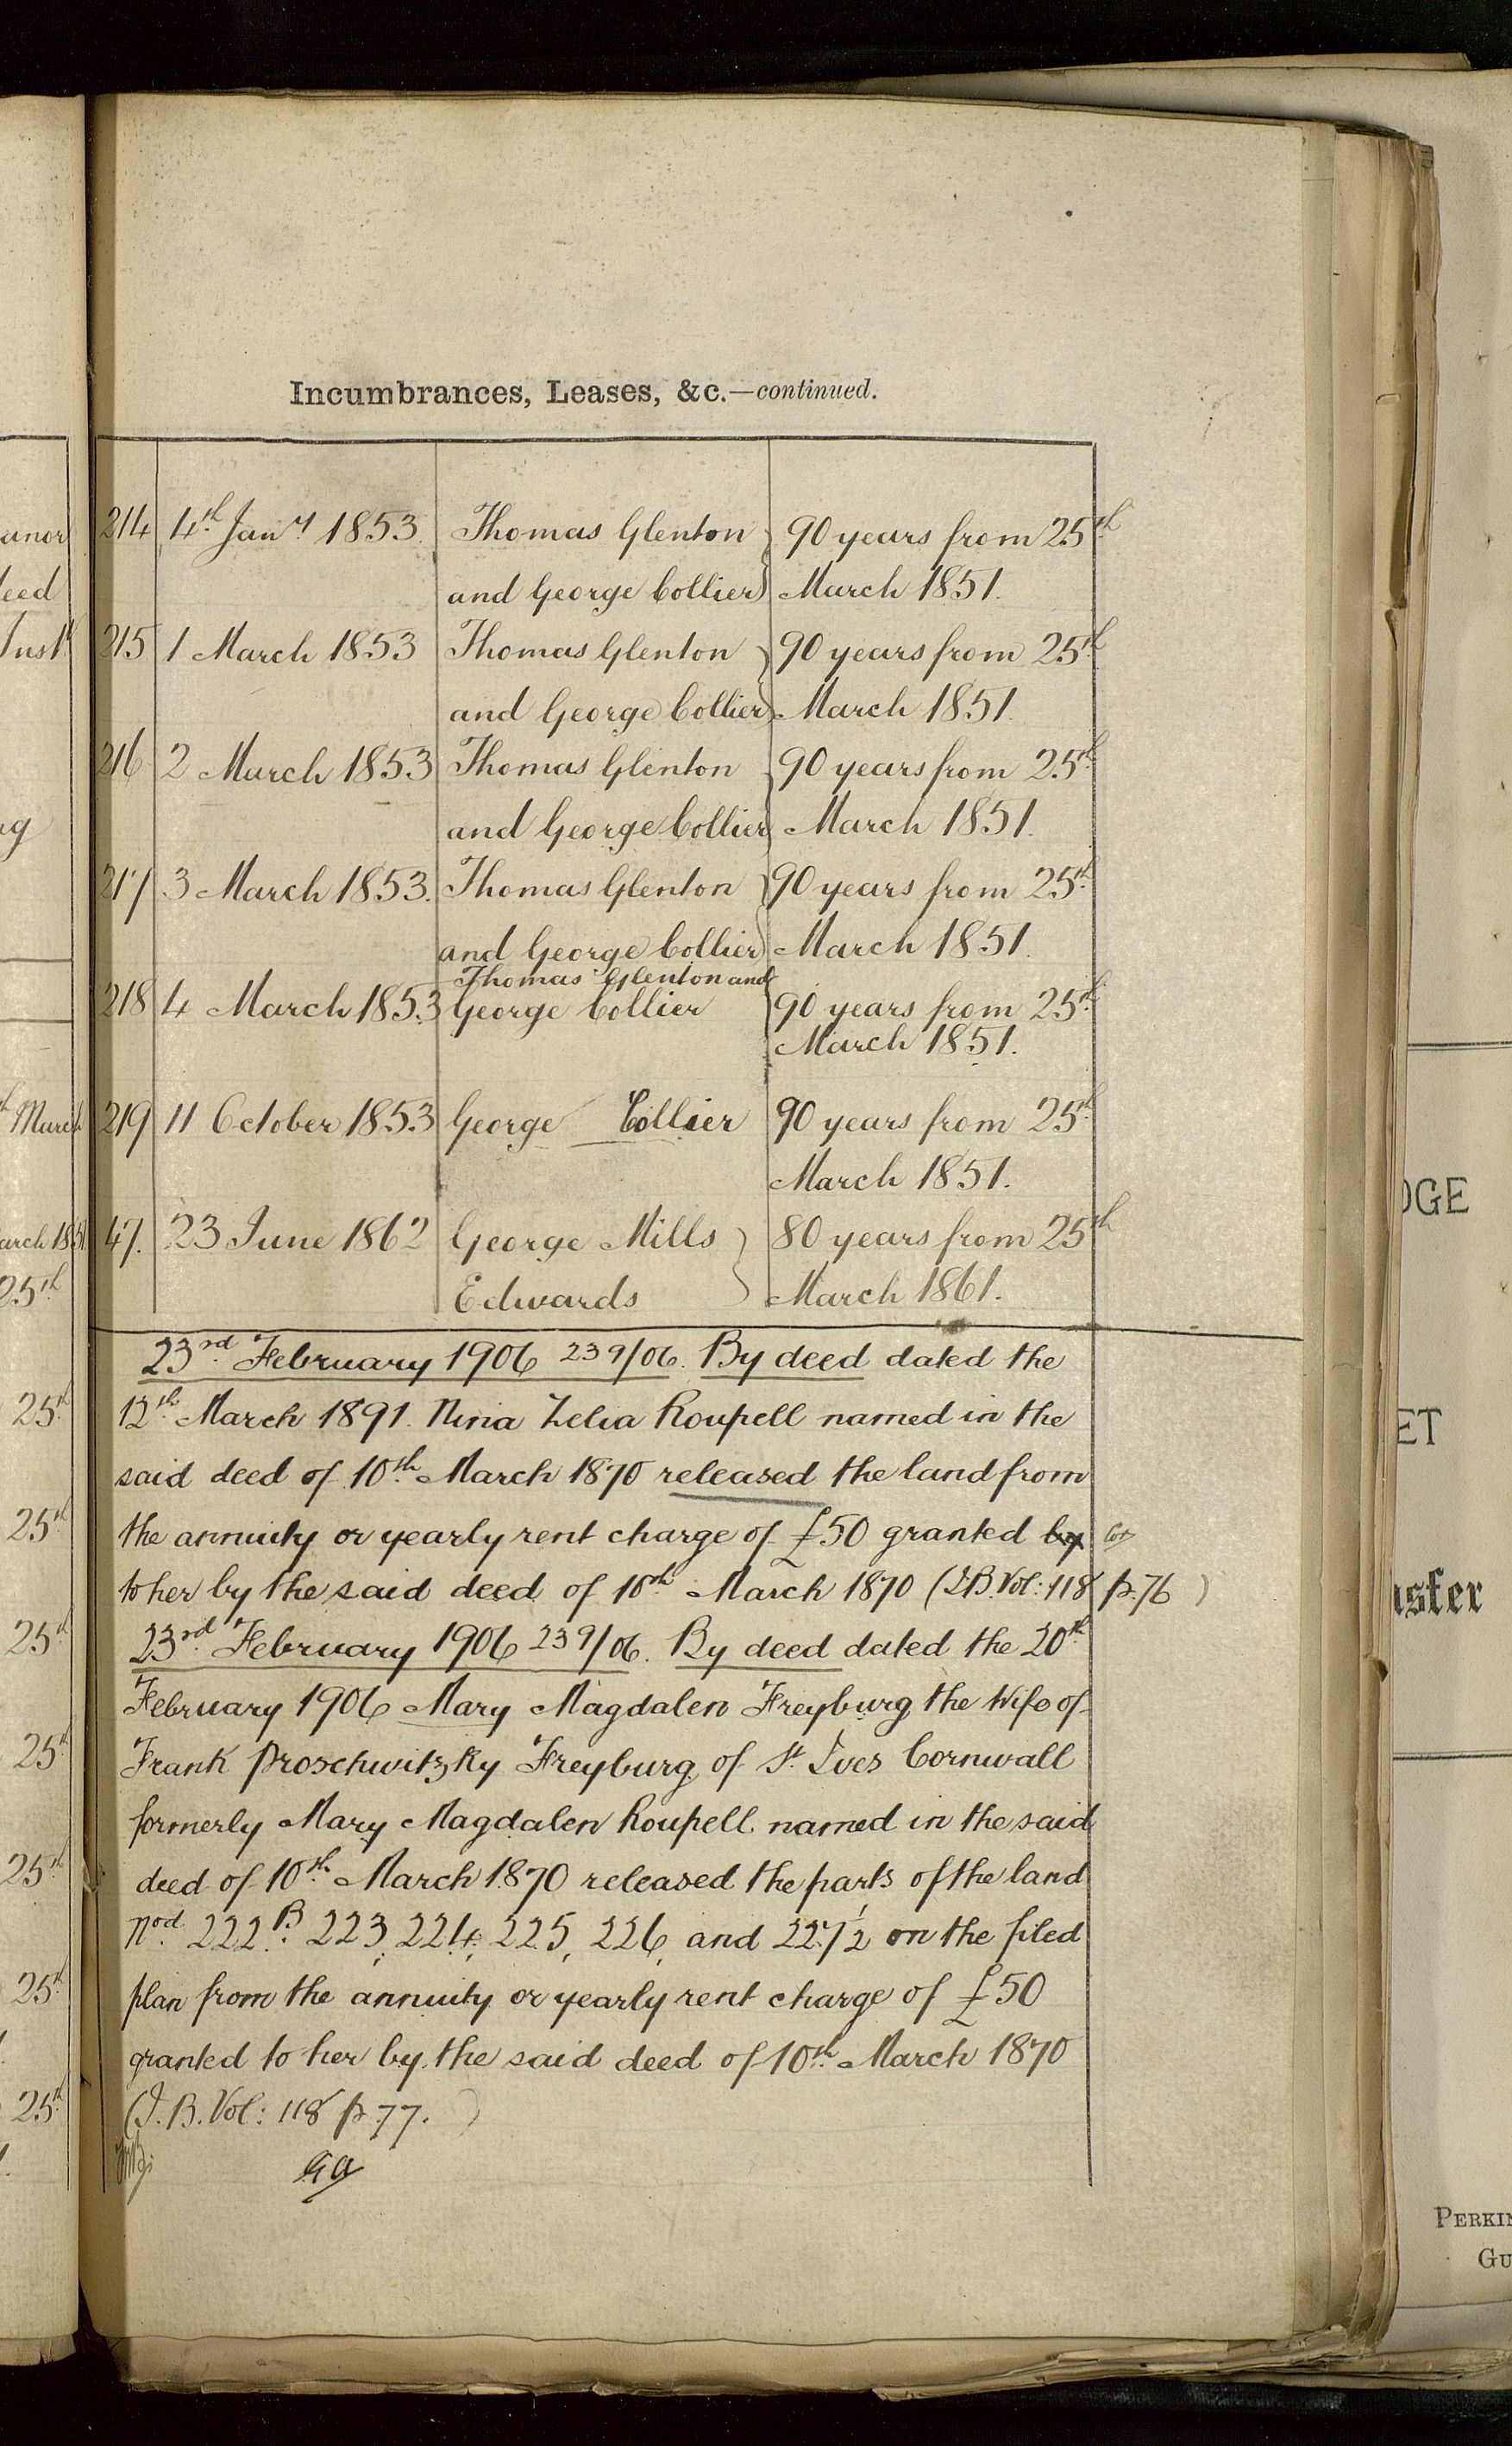 Incumbrances, Leases, &c.—continued.
214 4th Jany 1853. Thomas Glenton 90 years from 25th
and George Collier March 1851.
215 1 March 1853 Thomas Glenton 90 years from 25th
and George Collier March 1851.
216 2 March 1853 Thomas Glenton 90 years from 25th
and George Collier March 1851.
217 3 March 1853. Thomas Glenton 90 years from 25th
and George Collier March 1851.
Thomas Glenton and
218 4 March 1853 George Collier 90 years from 25th
March 1851.
219 11 October 1853 George Collier 90 years from 25th
March 1851.
47. 23 June 1862 George Mills 80 years from 25th
Edwards March 1861.
23rd February 1906 239/06. By deed dated the
12th March 1891. Nina Zelia Roupell named in the
said deed of 10th March 1870 released the land from
the annuity or yearly rent charge of £50 granted by
to her by the said deed of 10th March 1870 (I.B. Vol: 118 p. 76 )
23rd February 1906 239/06. By deed dated the 20th
February 1906 Mary Magdalen Freyburg the Wife of
Frank Proschwitzky Freyburg of St. Ives Cornwall
formerly Mary Magdalen Roupell named in the said
deed of 10th March 1870 released the parts of the land
nod. 222B. 223, 224, 225, 226, and 227½ on the filed
plan from the annuity or yearly rent charge of £50
granted to her by the said deed of 10th March 1870
(I.B. Vol: 118 p. 77. )
GA
anor
deed
Inst
March
25th
25th
25th
25th
25th
25th
25th
25th
DGE
ET
nsfer
PERKIN
GU